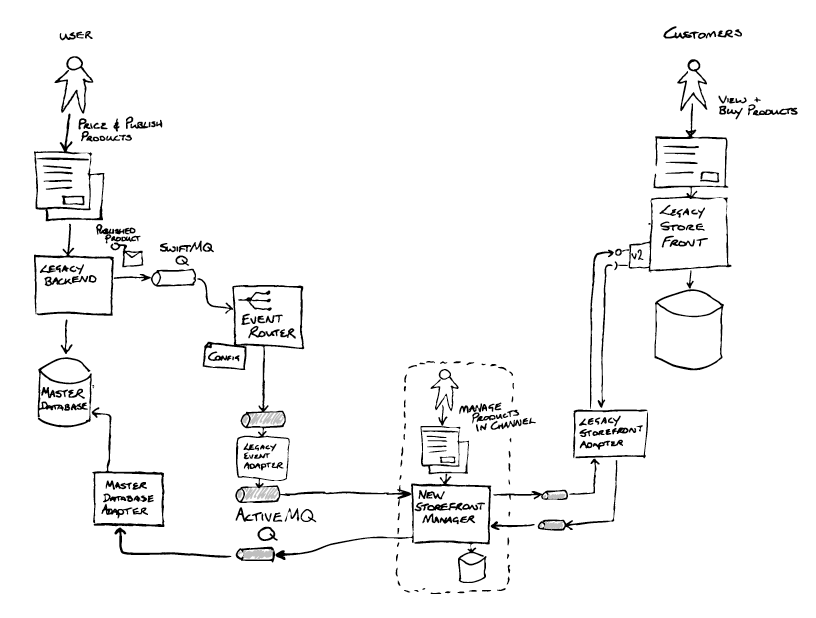 USER
PRICE & PUBLISH
PRODUCTS
PUBLISHED
PRODUCT
SWIFTMQ
Q
LEGACY
BACKEND
EVENT
ROUTER
CONFIG
MASTER
DATABASE
LEGACY
EVENT
ADAPTER
MASTER
DATABASE
ADAPTER
ACTIVEMQ
Q
MANAGE
PRODUCTS
IN CHANNEL
NEW
STOREFRONT
MANAGER
CUSTOMERS
VIEW +
BUY PRODUCTS
LEGACY
STORE
FRONT
V2
LEGACY
STOREFRONT
ADAPTER